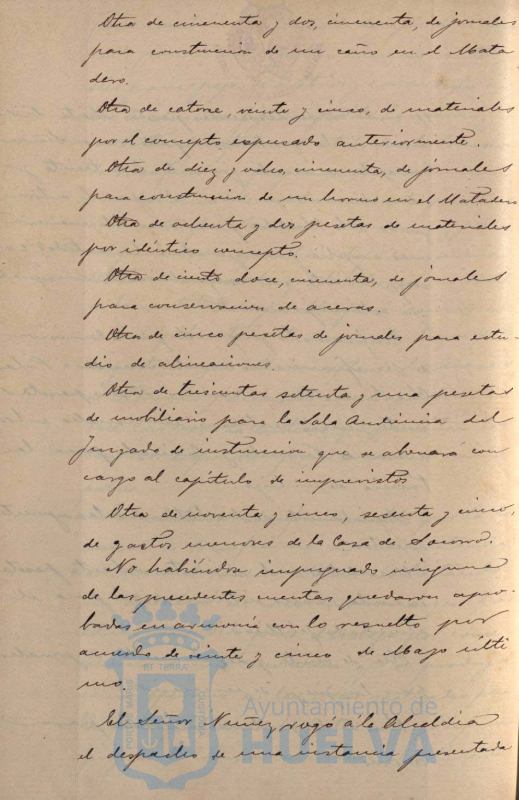 Otra de cincuenta y dos, cincuenta, de jornales
para construccion de un caño en el Mata
dero.
Otra de catorce, veinte y cinco, de materiales
por el concepto espresado anteriormente.
Otra de diez y ocho, cincuenta, de jornales
para construccion de un horno en el Matadero
Otra de ochenta y dos pesetas de materiales
por idéntico concepto.
Otra de ciento doce, cincuenta, de jornales
para conservacion de aceras.
Otra de cinco pesetas de jornales para estu-
dio de alineaciones.
Otra de trescientas setenta y una pesetas
de mobiliario para la Sala Audiencia del
Juzgado de instruccion que se abonará con
cargo al capítulo de imprevistos
Otra de noventa y cinco, sesenta y cinco,
de gastos menores de la Casa de Socorro.
No habiéndose impugnado ninguna
de las precedentes cuentas quedaron apro-
badas en armonía con lo resuelto por
acuerdo de veinte y cinco de Mayo últi
mo.
El Señor Nuñez rogó á la Alcaldia
el despacho de una instancia presentada
Ayuntamiento de
HUELVA